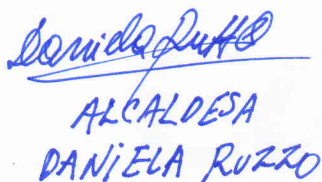 Daniela Ruzzo
ALCALDESA
DANiELA RUZZO